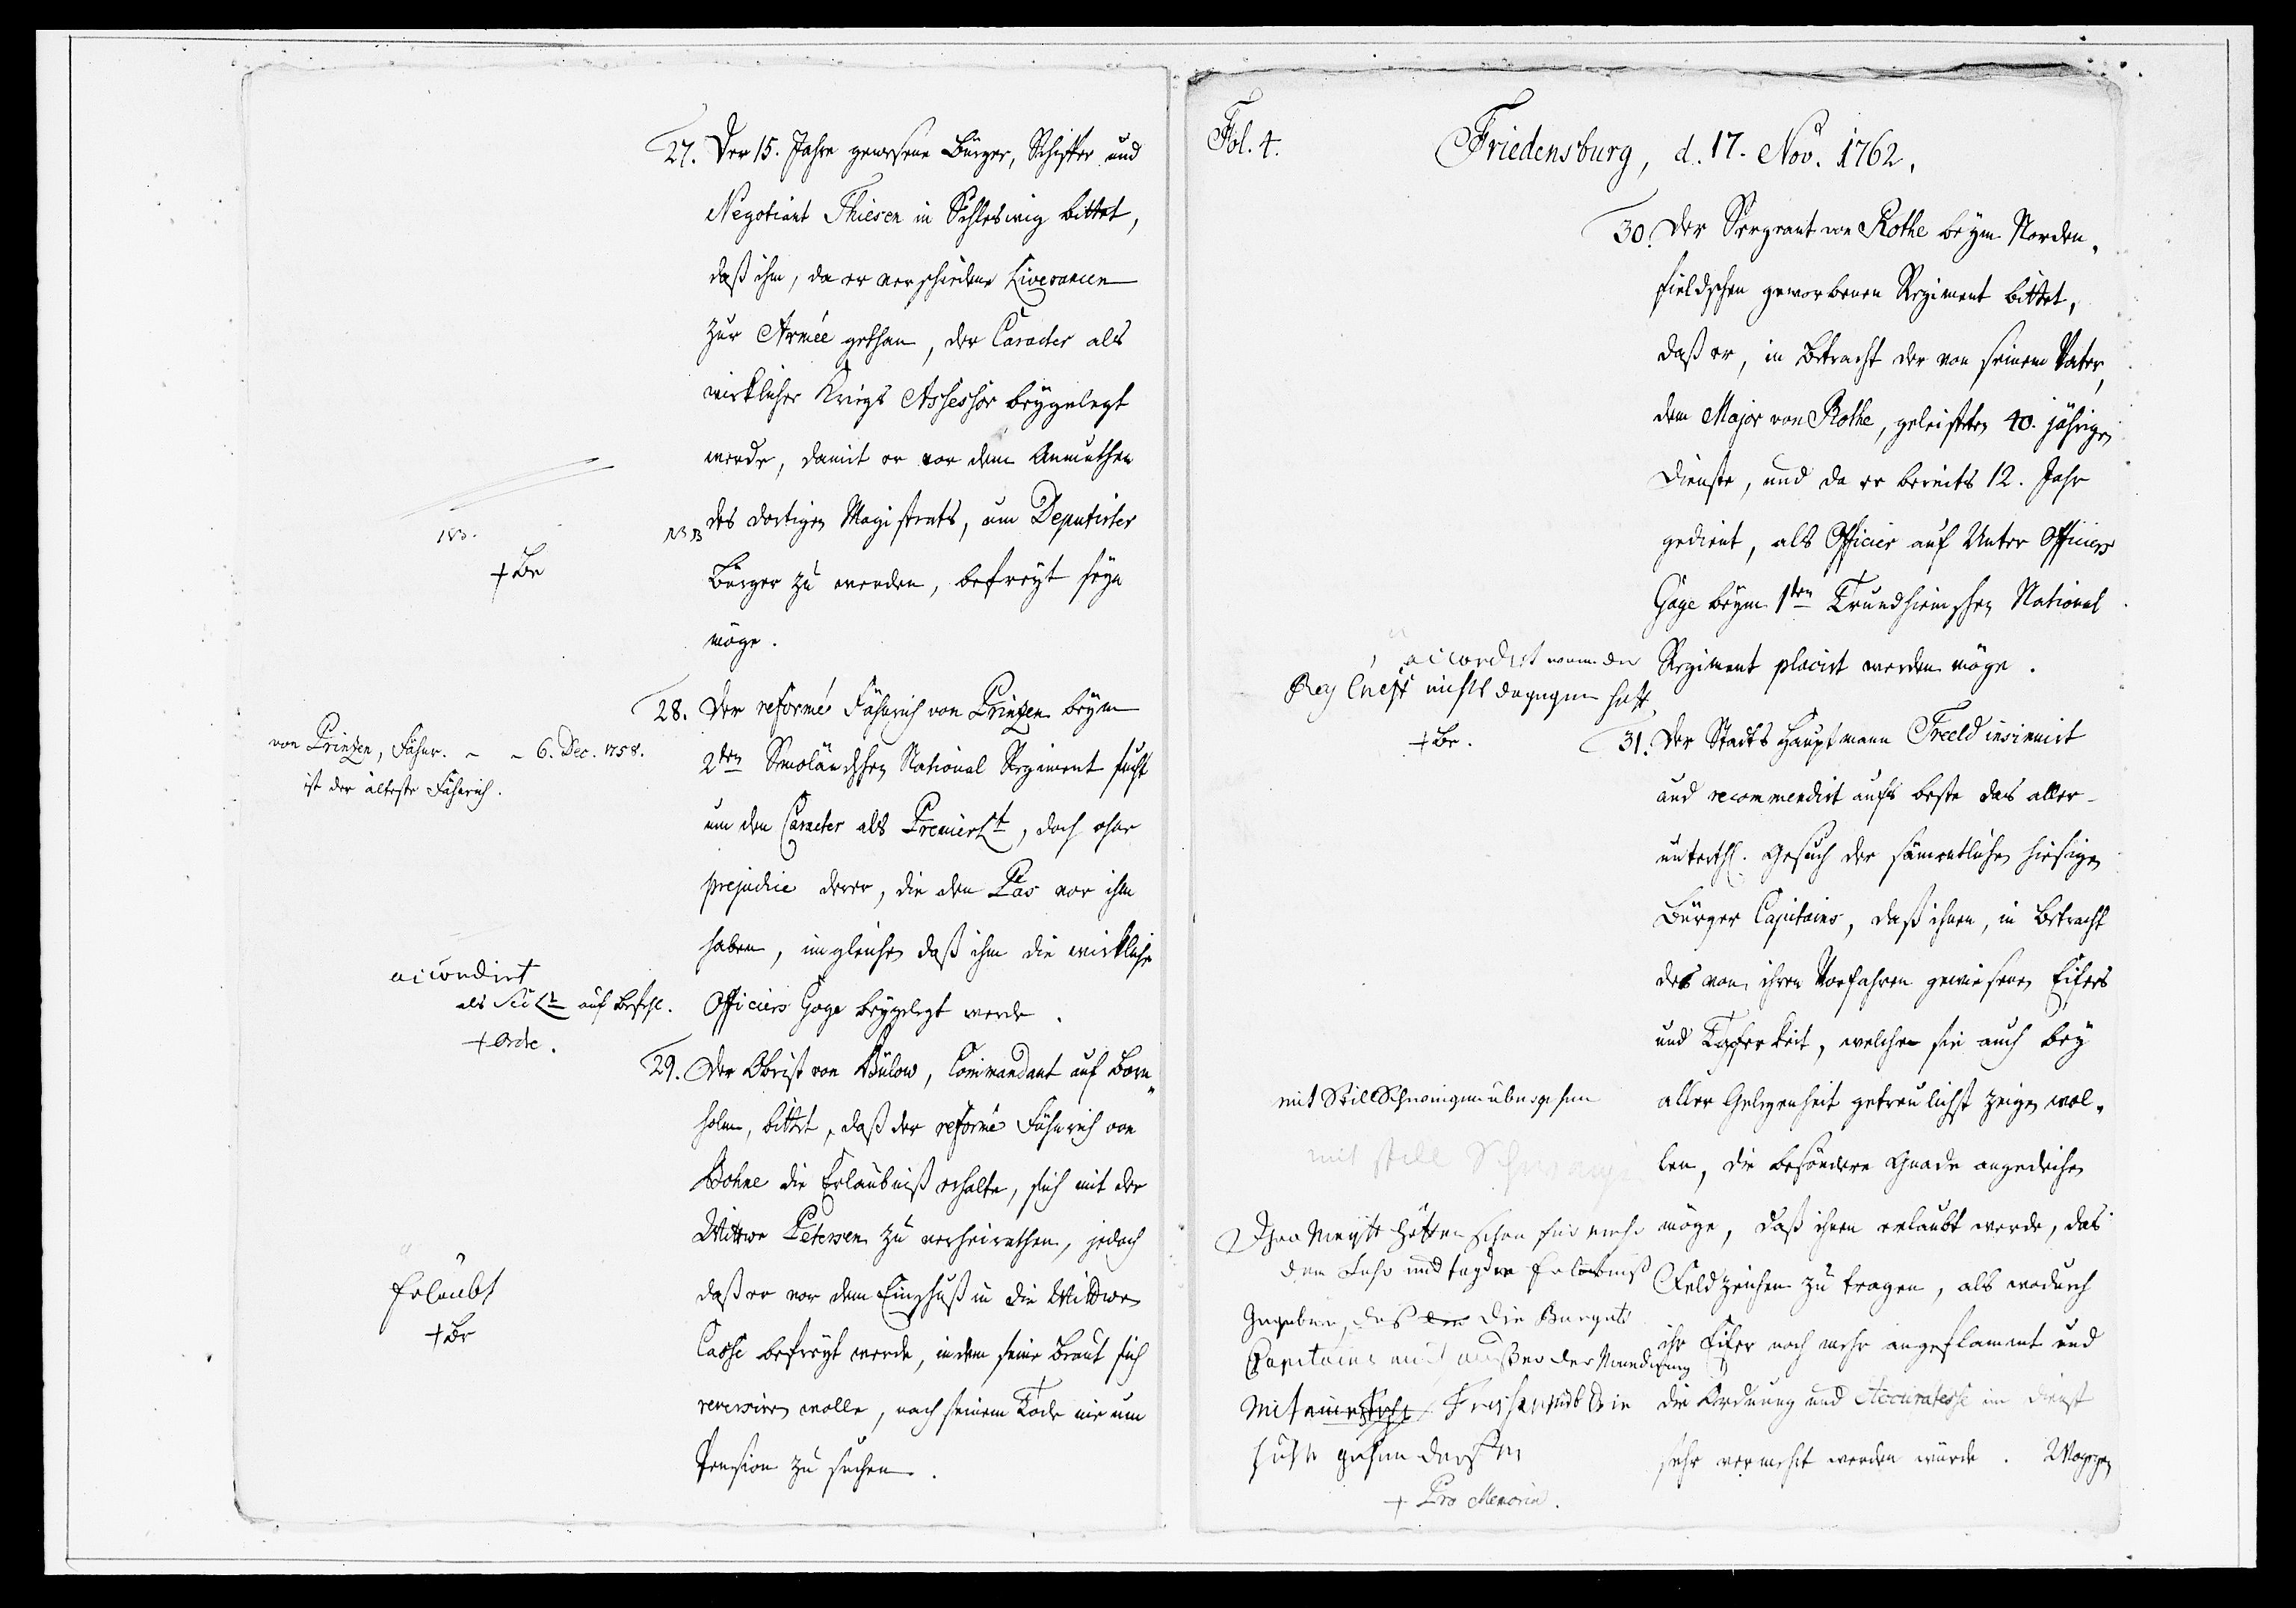 27. Der 15. Jahre gewesene Bürger, Schiffer und
Negotiant Thiesen in Schleswig bittet,
daß ihm, da er verschiedene Liverancen
zur Armée gethan, der Caracter als
wirklicher Kriegs Assessor beygelegt
werde, damit er vor dem Anmuthen
des dortigen Magistrats, um Deputirter
Bürger zu werden, befreyt seyn
möge.
+ Br
28. Der reformé Fähnrich von Prinzen beym
2ten Smoländschen National Regiment sucht
um den Caracter als PremierLt, doch ohne
prejudice derer, die den Pas vor ihm
haben, imgleichen daß ihm die wirkliche
Officiers Gage beygelegt werde.
von Prinzen, Fähnr. - - 6. Dec. 1758.
ist der älteste Fähnrich.
accordirt
als Sec Lt auf Befehl.
+ Ordre.
29. Der Obrist von Bülow, Commandant auf Born„
holm, bittet, daß der reformé Fähnrich von
Bohne die Erlaubniß erhalte, sich mit der
Wittwe Petersen zu verheirathen, jedoch
daß er vor dem Einschuß in die Wittwen
Casse befreyt werde, indem seine Braut sich
reversiren wolle, nach seinem Tode nie um
Pension zu suchen.
Erlaubt
+ Br
Fol. 4.
Friedensburg, d. 17. Nov. 1762.
30. Der Sergeant von Rothe beym Norden„
fieldschen geworbenen Regiment bittet,
daß er, in Betracht der von seinem Vater,
dem Major von Rothe, geleisteten 40. jährigen
Dienste, und da er bereits 12. Jahr
gedient, als Officier auf Unter Officiers
Gage beym 1sten Trundhiemschen National
Regiment placirt werden möge.
accordirt wenn der
Reg Chef nichts dagegen hatt
+ Br.
31. Der Stadts Hauptmann Freeld insinuirt
und recommendirt aufs beste das aller-
unterth. Gesuch der sämmtlichen hiesigen
Bürger Capitains, daß ihnen, in Betracht
des von ihren Vorfahren gewiesenen Eifers
und Tapferkeit, welchen sie auch bey
aller Gelegenheit getreulichst zeigen wol„
len, die besondere Gnade angedeihen
möge, daß ihnen erlaubt werde, das
Feldzeichen zu tragen, als wodurch
ihr Eifer noch mehr angeflammt und
die Ordnung und Accuratesse im Dienst
sehr vermehrt werden würde. Wogegen
mit Still Schweigen übergehen
mit still Schweig
Ihro Maystt hätten schon für mehr
den Jahr und tag die Erlaubniß
Gegeben, das die Burger
Capitains auch außer der Mundirung
Mit
gehen dürften
+ Pro Memoria.